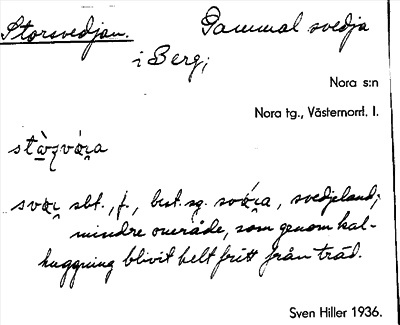 Storsvedjan. Gammal svedja
i Berg;
Nora s:n
Nora tg., Västernorrl. l.
svar̥ sbt., f., best. sg. svár̥a, svedjeland;
mindre område, som genom kal-
huggning blivit helt fritt från träd.
Sven Hiller 1936.